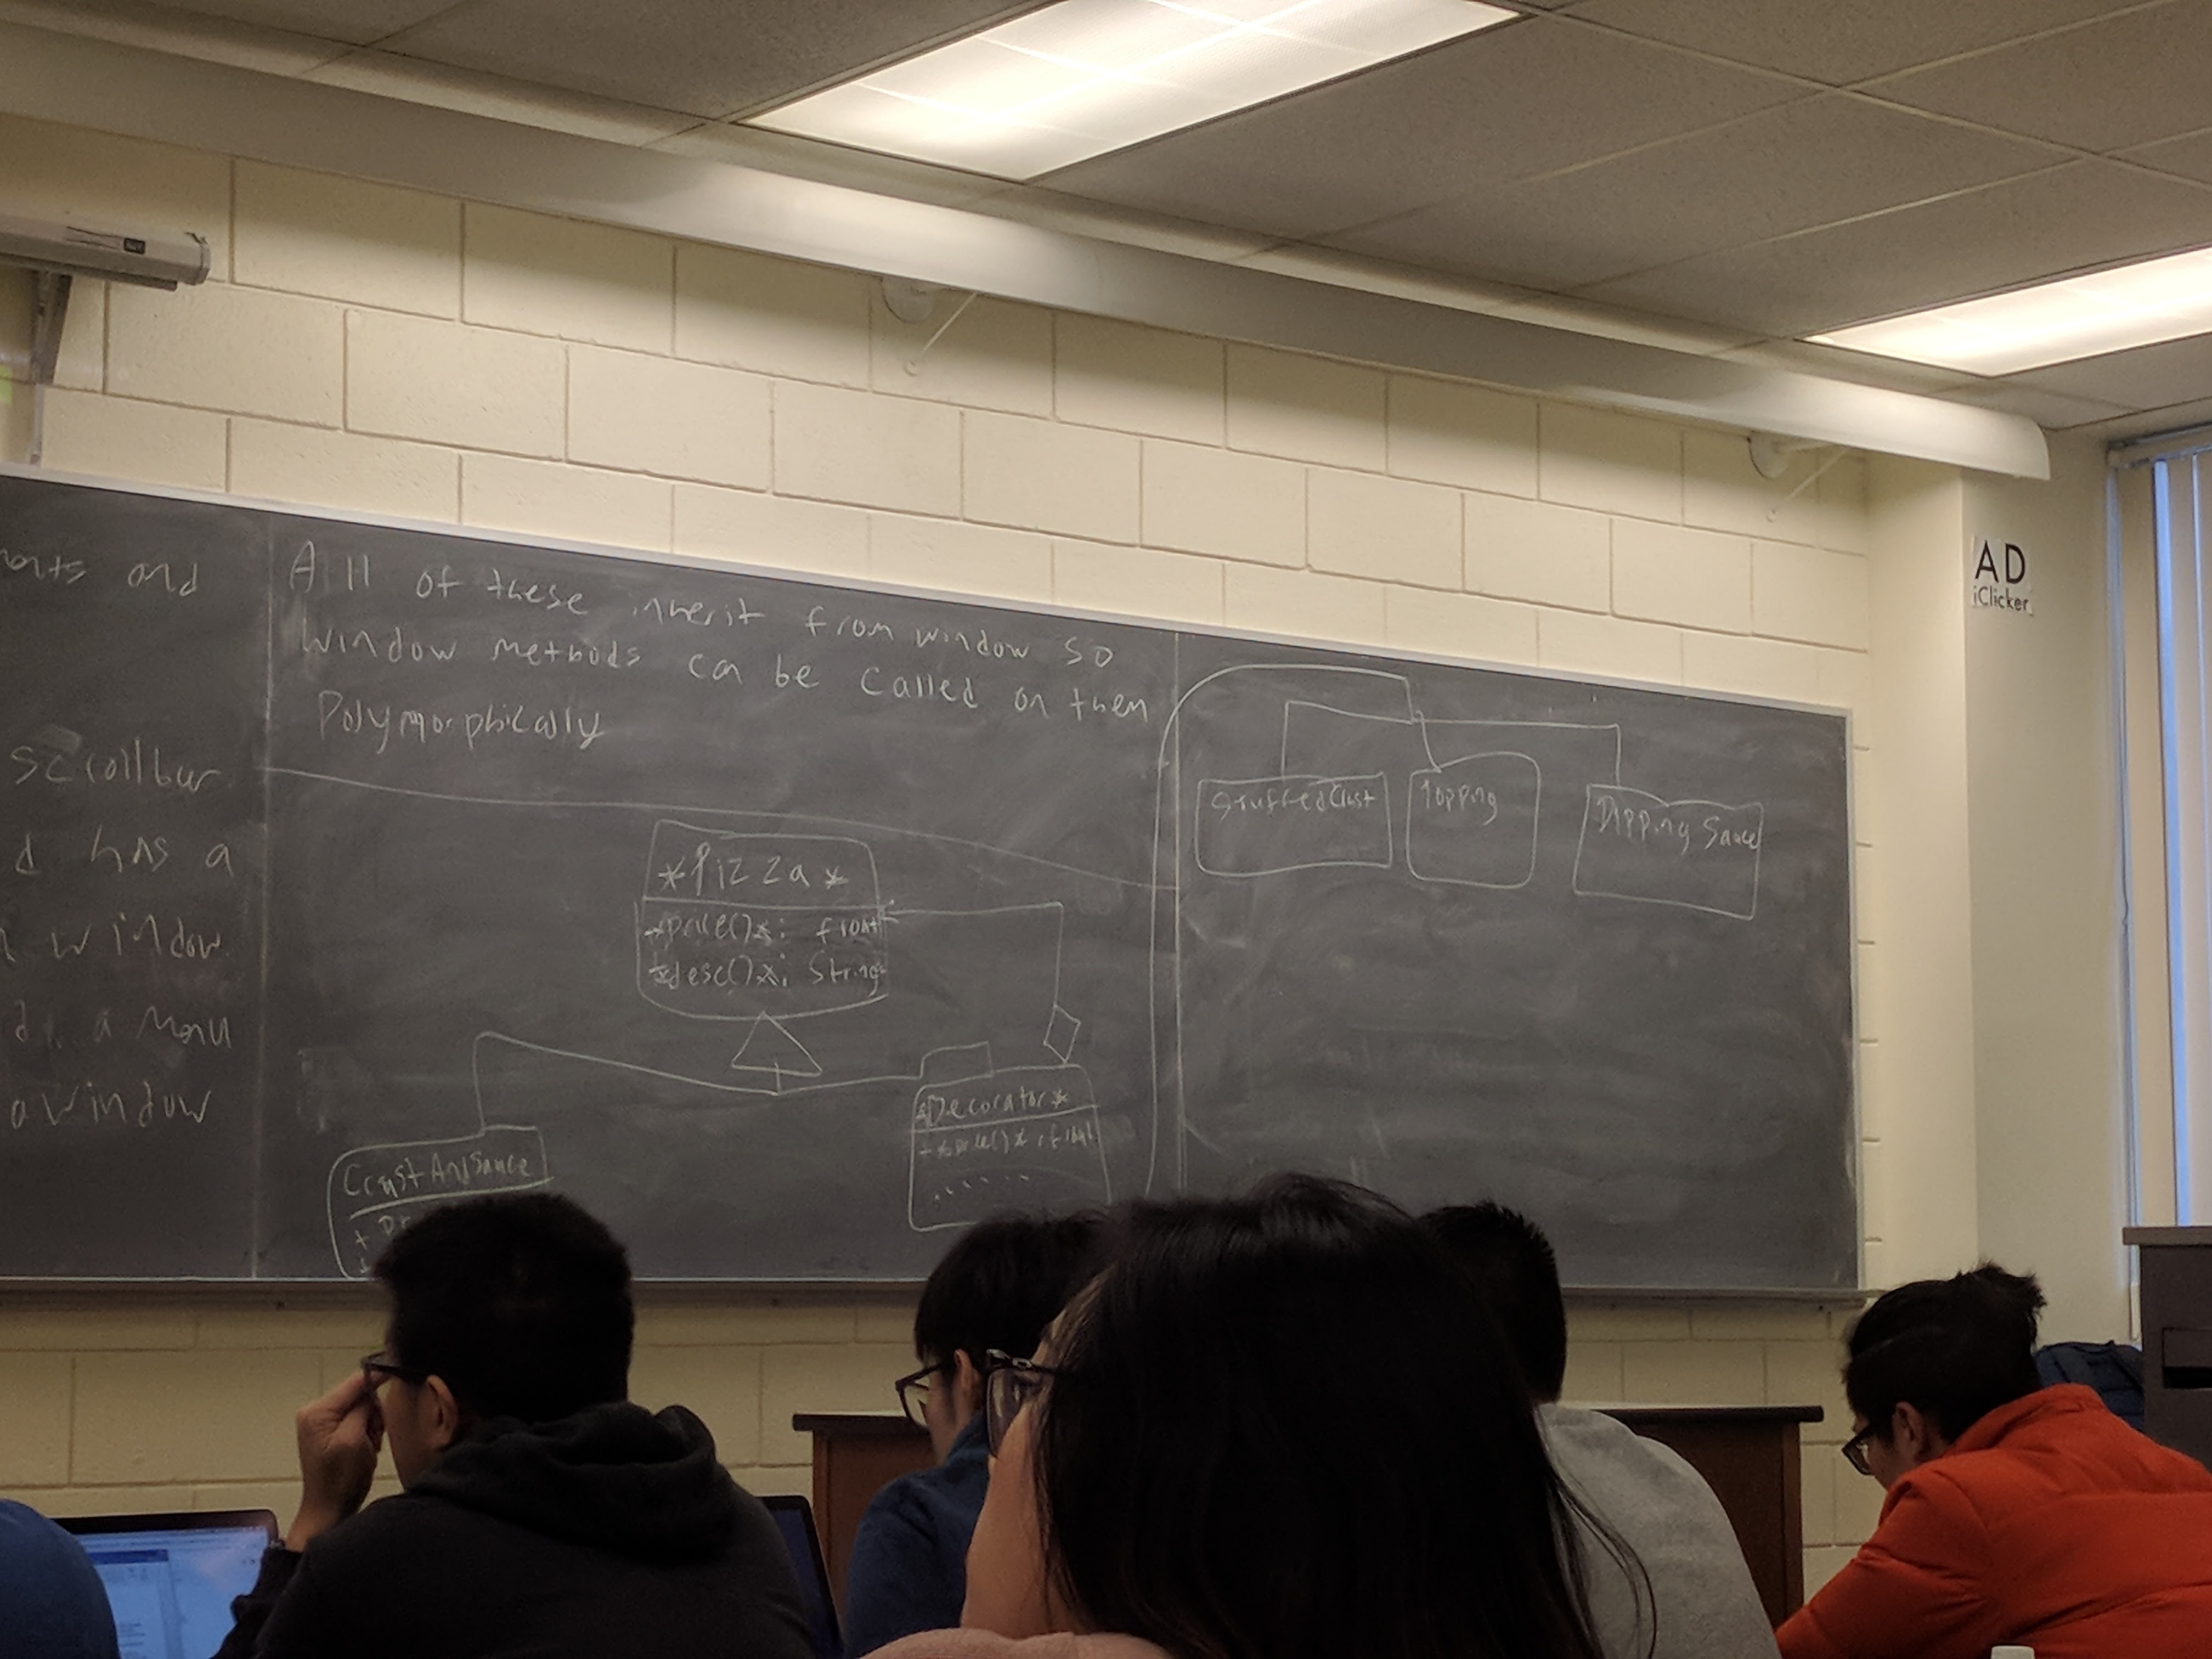 and
scrollbar
d has a
window
a Menu
a window
All of these inherit from window so
window methods can be called on them
Polymorphically
*Pizza*
*price()*: float
*desc()*: String
CrustAndSauce
+ Pr
*Decorator*
+ *price()* : float
......
StuffedCrust
Topping
Dipping Sauce
AD
iClicker